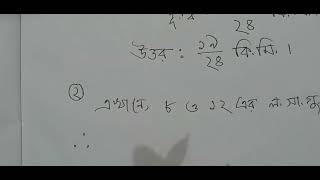 ২৪
উত্তর : ১৯/২৪ কি.মি. ।
② এখানে, ৮ ও ১২ এর ল. সা. গু
∴